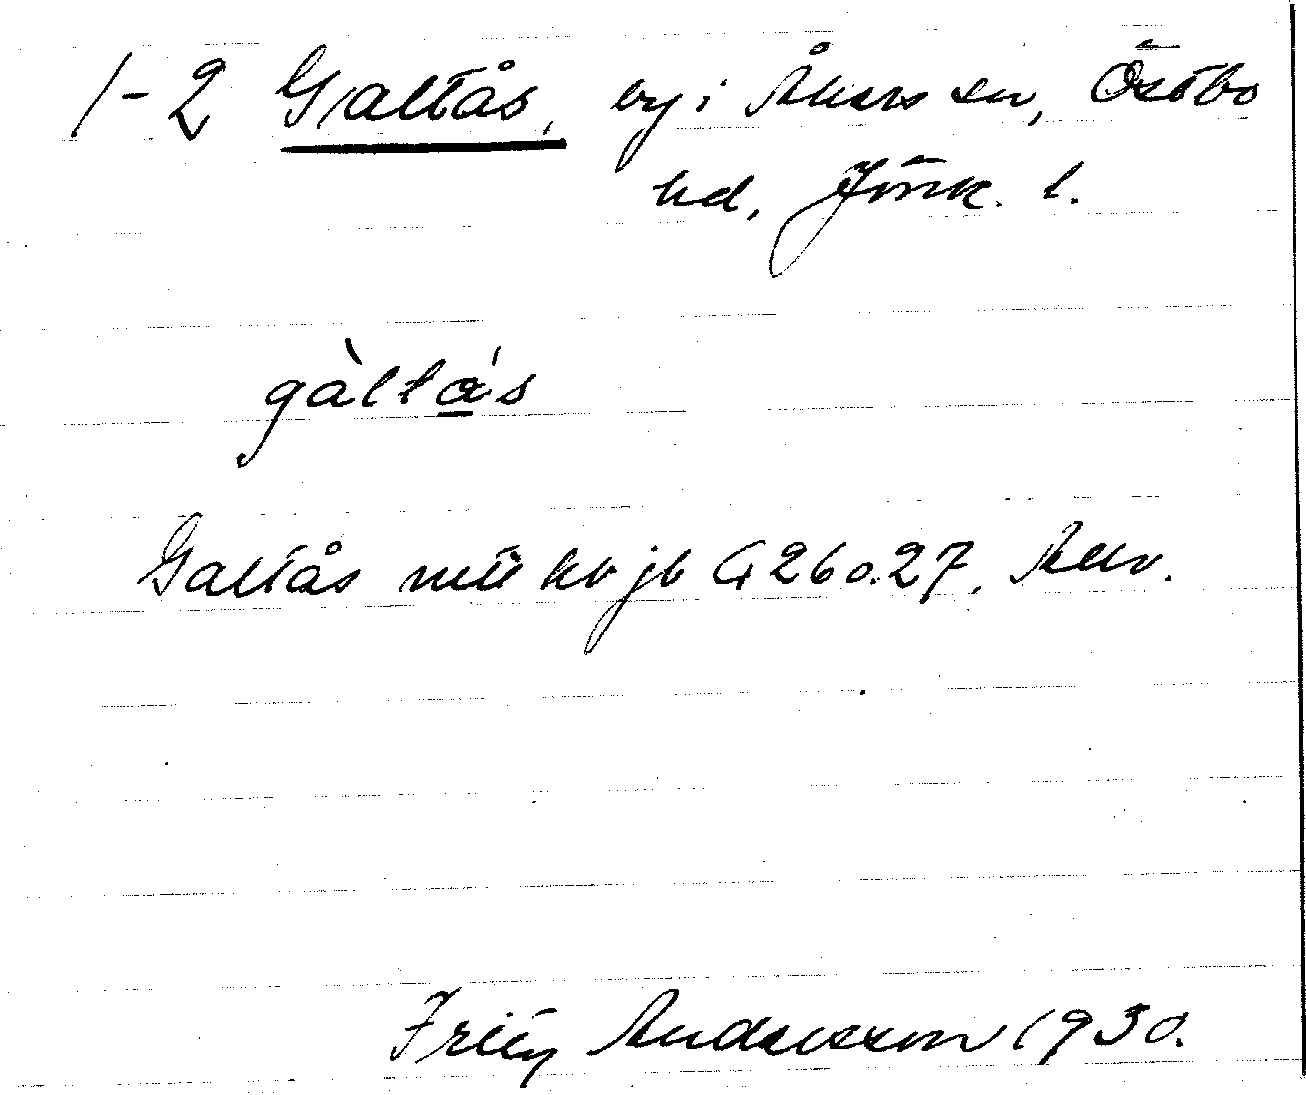 1-2 Galtås, by i Åkers sn, Östbo
hd, Jönk. l.
gàltǻs
Galtås mtl kr jb G 26 o. 27, Allv.
Fritz Andersson 1930.